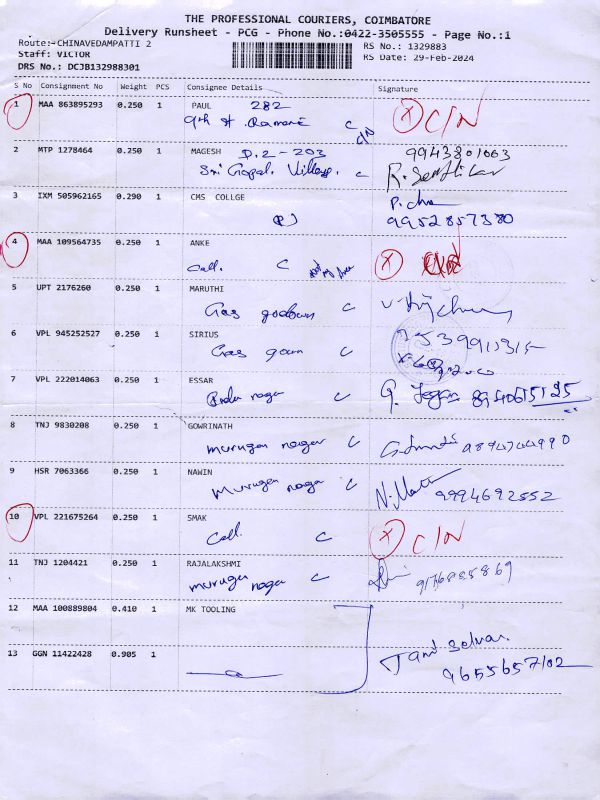 THE PROFESSIONAL COURIERS, COIMBATORE
Delivery Runsheet - PCG - Phone No.:0422-3505555 - Page No.:1
Route:-CHINAVEDAMPATTI 2
RS No.: 1329883
Staff: VICTOR
RS Date: 29-Feb-2024
DRS No.: DCJB132988301
S No Consignment No Weight PCS Consignee Details Signature
1 MAA 863895293 0.250 1 PAUL 282
9th st. C C/N (X) C/N
2 MTP 1278464 0.250 1 MAGESH D.2-203 9943801063
Sri Gopal Village. C R. Senthil
3 IXM 505962165 0.290 1 CMS COLLGE P.
9952857380
4 MAA 109564735 0.250 1 ANKE
Call. C (X)
5 UPT 2176260 0.250 1 MARUTHI
Gas godown C
6 VPL 945252527 0.250 1 SIRIUS
Gas C
7 VPL 222014063 0.250 1 ESSAR
nagar C G.
8 TNJ 9830208 0.250 1 GOWRINATH
murugan nagar C
9 HSR 7063366 0.250 1 NAWIN
murugan nagar C N. 9994692552
10 VPL 221675264 0.250 1 SMAK
Call. C (X) C/N
11 TNJ 1204421 0.250 1 RAJALAKSHMI
murugan nagar C
12 MAA 100889804 0.410 1 MK TOOLING
13 GGN 11422428 0.905 1
Tamil Selvan.
9655657102